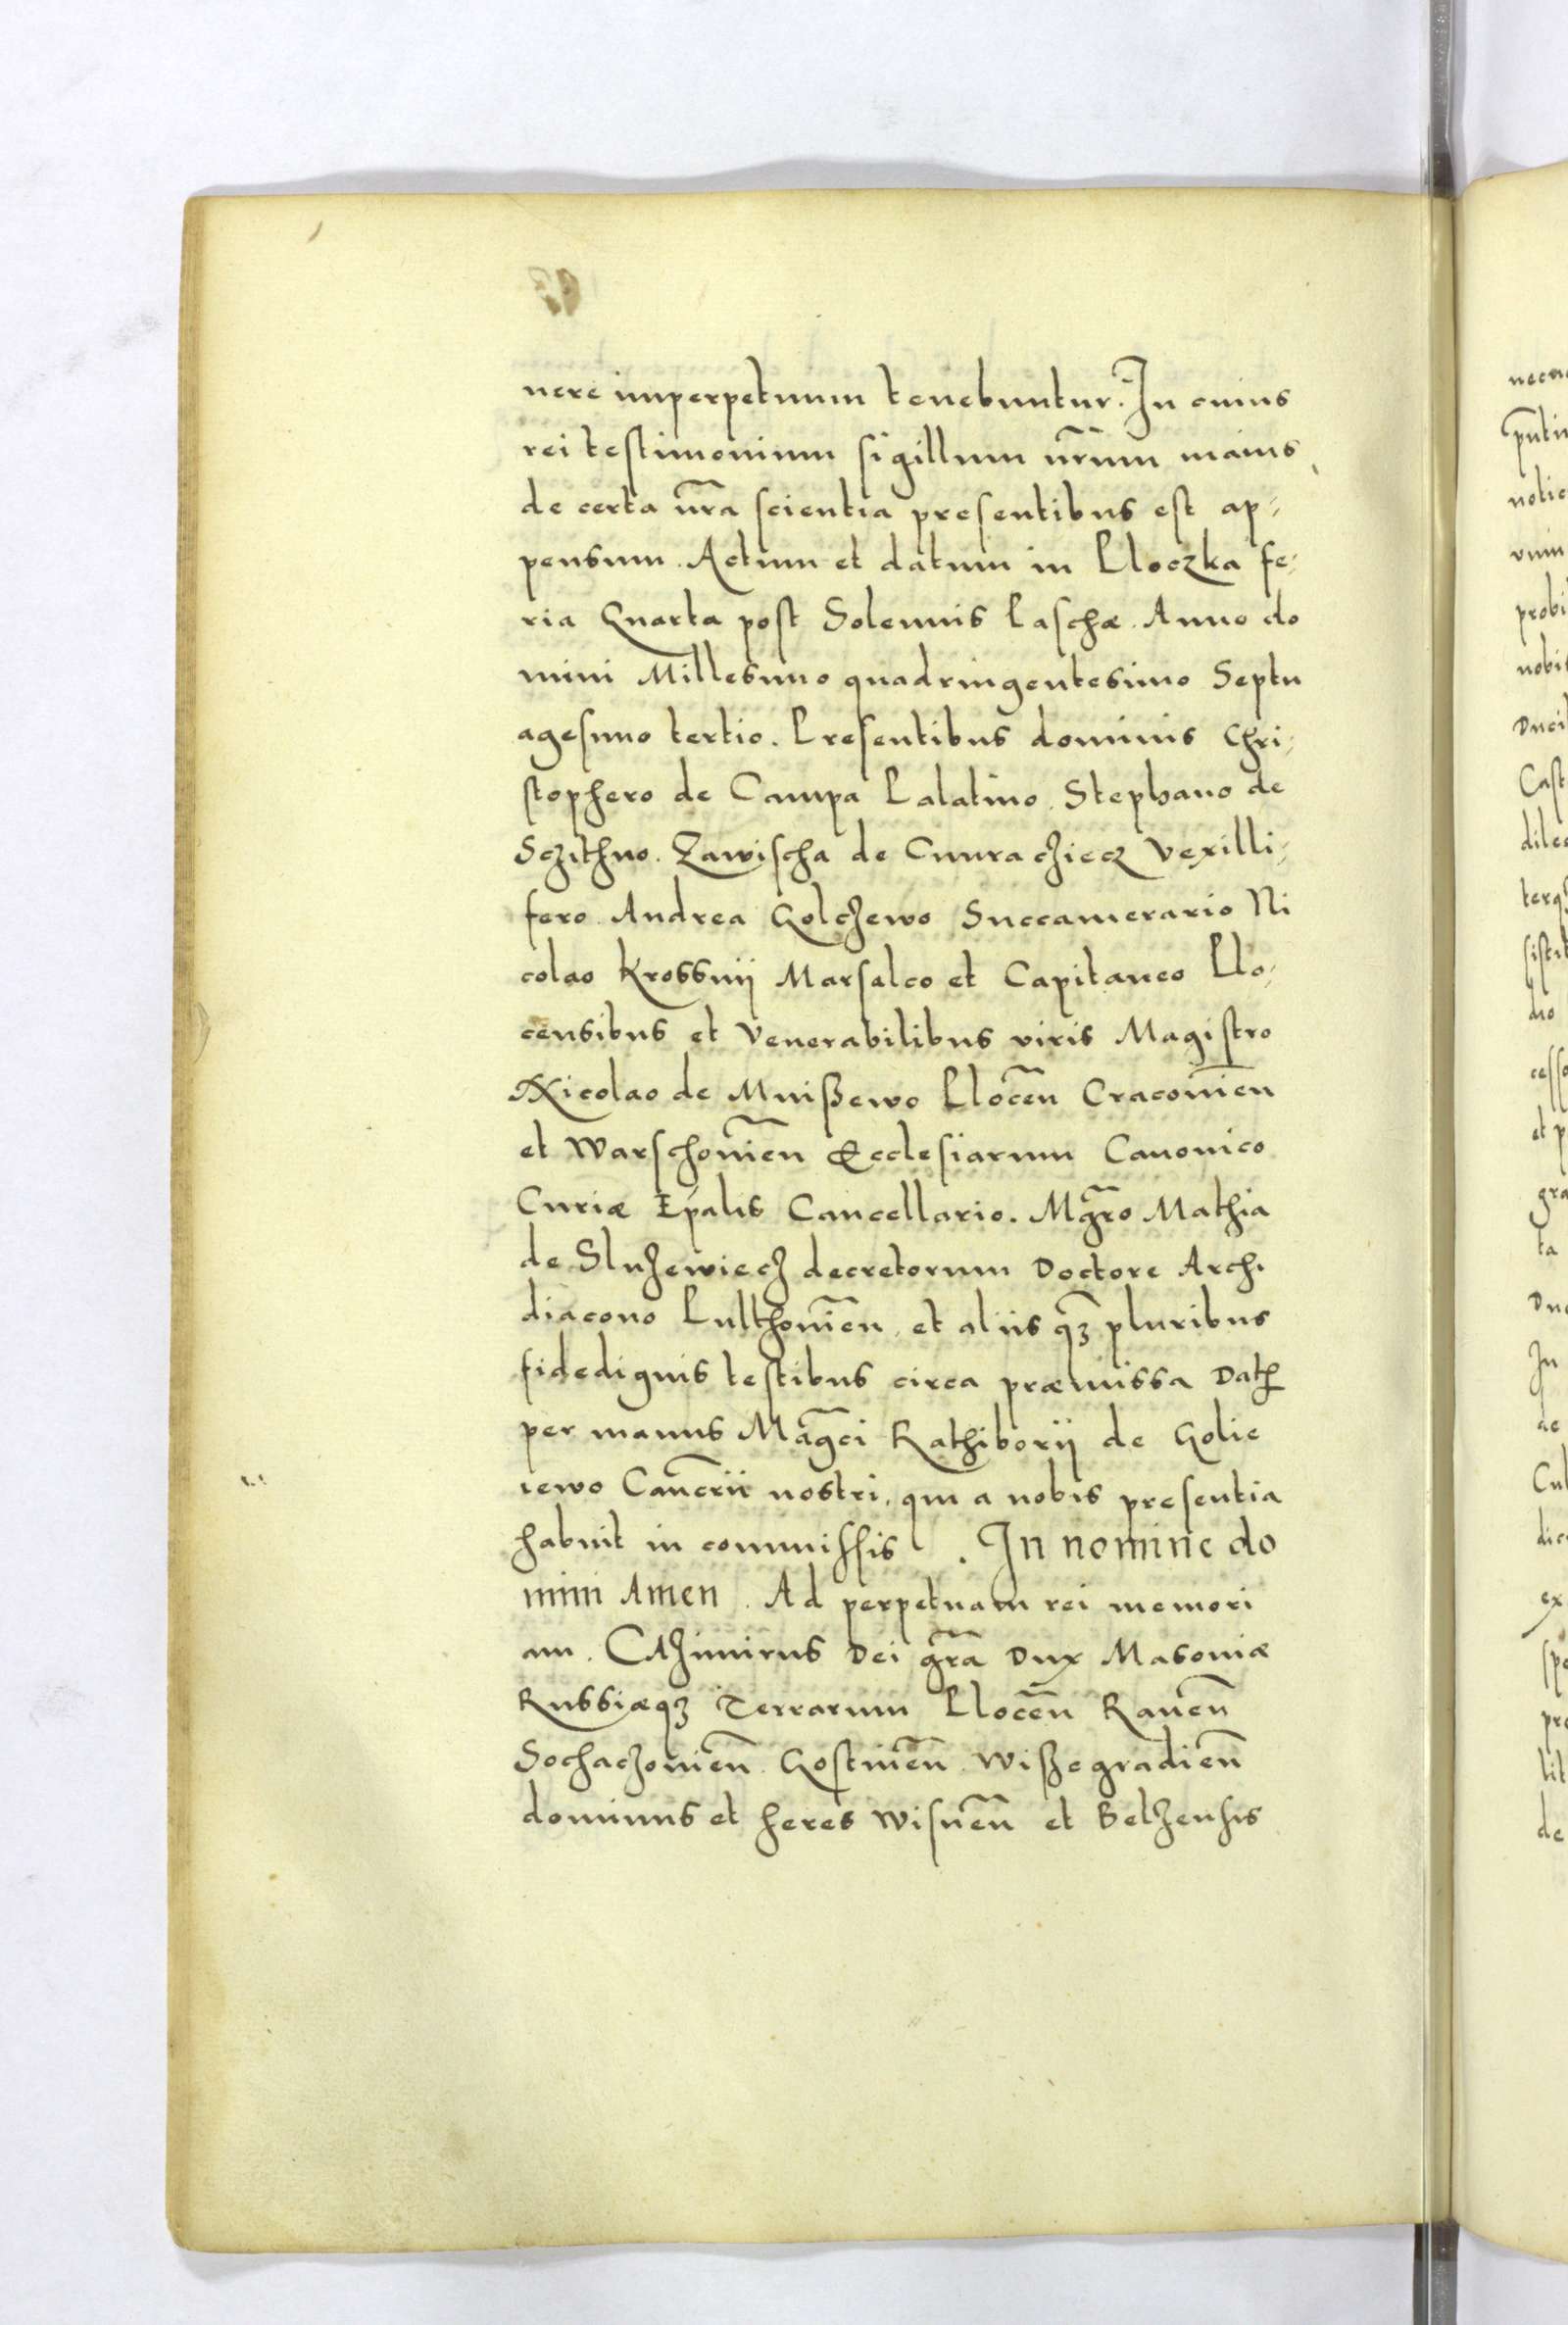 nere imperpetuum tenebuntur. In cuius
rei testimonium sigillum nr̃um maius
de certa nr̃a scientia presentibus est ap-
pensum. Actum et datum in Ploczka fe-
ria Quarta post Solennis Paschæ. Anno do
mini Millesimo quadringentesimo Septu
agesimo tertio. Presentibus dominis Chri-
stophero de Campa Palatino. Stephano de
Sczithno. Zawischa de Cuuracziecz Vexilli-
fero. Andrea Golczewo Succamerario Ni
colao Krossnij Marsalco et Capitaneo Plo-
censibus et Venerabilibus viris Magistro
Nicolao de Mnißewo Plocen̄ Craconien̄
et Warschouien̄ Ecclesiarum Canonico
Curiæ Ep̄alis Cancellario. Mgr̃o Mathia
de Sluzewiecz decretorum Doctore Archi
diacono Pulthouien̄, et aliis qȝ pluribus
fidedignis testibus circa præmissa Dat
per manus Mag̃ci Rathiborij de Golie
iewo Canc̃rii nostri, qui a nobis presentia
habuit in commissis . In nomine do
mini Amen. Ad perpetuam rei memori
am. CAzimirus Dei gr̃a Dux Masouiæ
Russiæqȝ Terrarum Plocen̄ Rauen̄
Sochaczouien̄. Gostinen̄. Wißegradien̄
dominus et heres Wisnen̄ et Belzensis